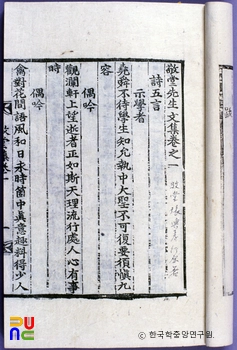 敬堂先生文集卷之一
詩五言
示學者
堯舜不待學生知允執中大聖不可復要須愼九
容
偶吟
觀瀾軒上望逝者正如斯天理流行處人心有事
時
偶吟
禽對花間語風和日未時箇中眞意趣料得少人
敬堂集卷一
한국학중앙연구원